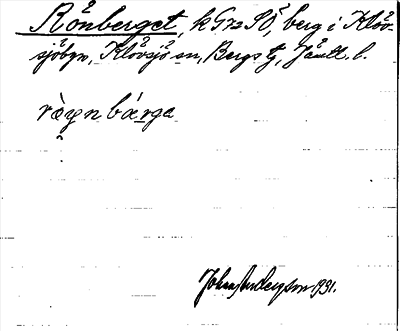 Rönberget, k G72 SÖ, berg i Klöv-
sjöbyn, Klövsjö sn, Bergs tg, Jämtl. l.
ròynbárga
John Andersson 1931.